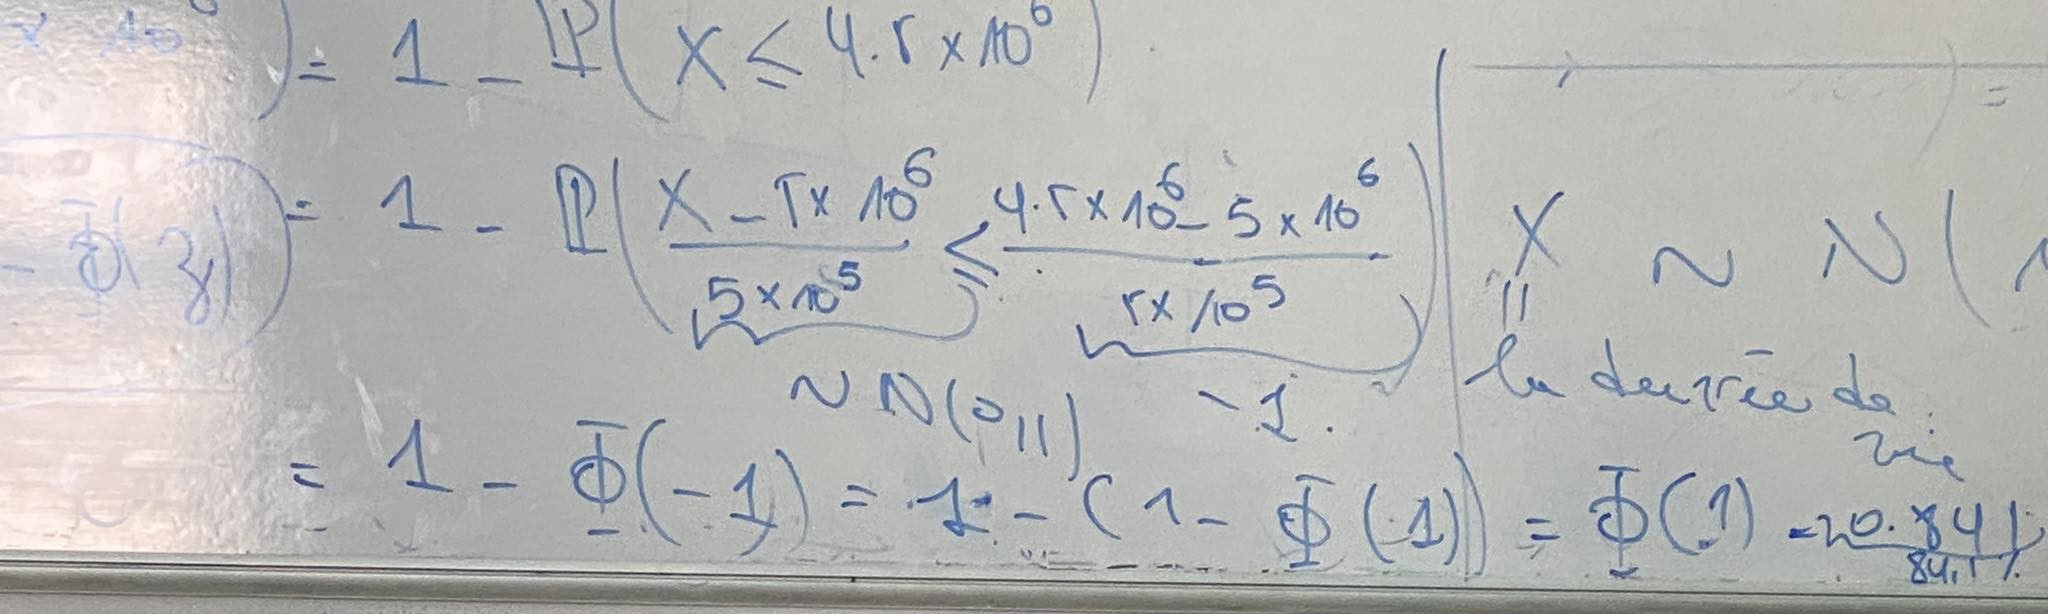 x 10⁶) = 1 - ℙ(X ≤ 4.5 × 10⁶)
- Φ(z)) = 1 - ℙ((X - 5 × 10⁶)/(5 × 10⁵) ≤ (4.5 × 10⁶ - 5 × 10⁶)/(5 × 10⁵))
~ N(0,1)
-1.
= 1 - Φ(-1) = 1 - (1 - Φ(1)) = Φ(1) = 0.841
84,1%
X ~ N(
=
la durée de
vie